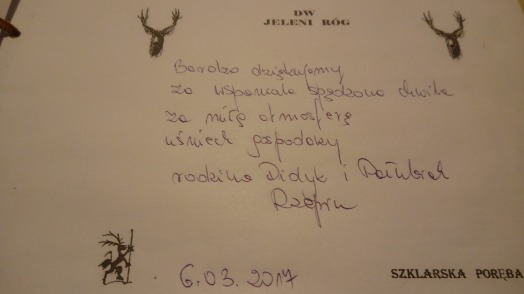 DW
JELENI RÓG
Bardzo dziękujemy
za wspaniale spędzone chwile
za miłą atmosferę
uśmiech gospodarzy
rodzina Didyk i
Rzepin
6.03.2017
SZKLARSKA PORĘBA